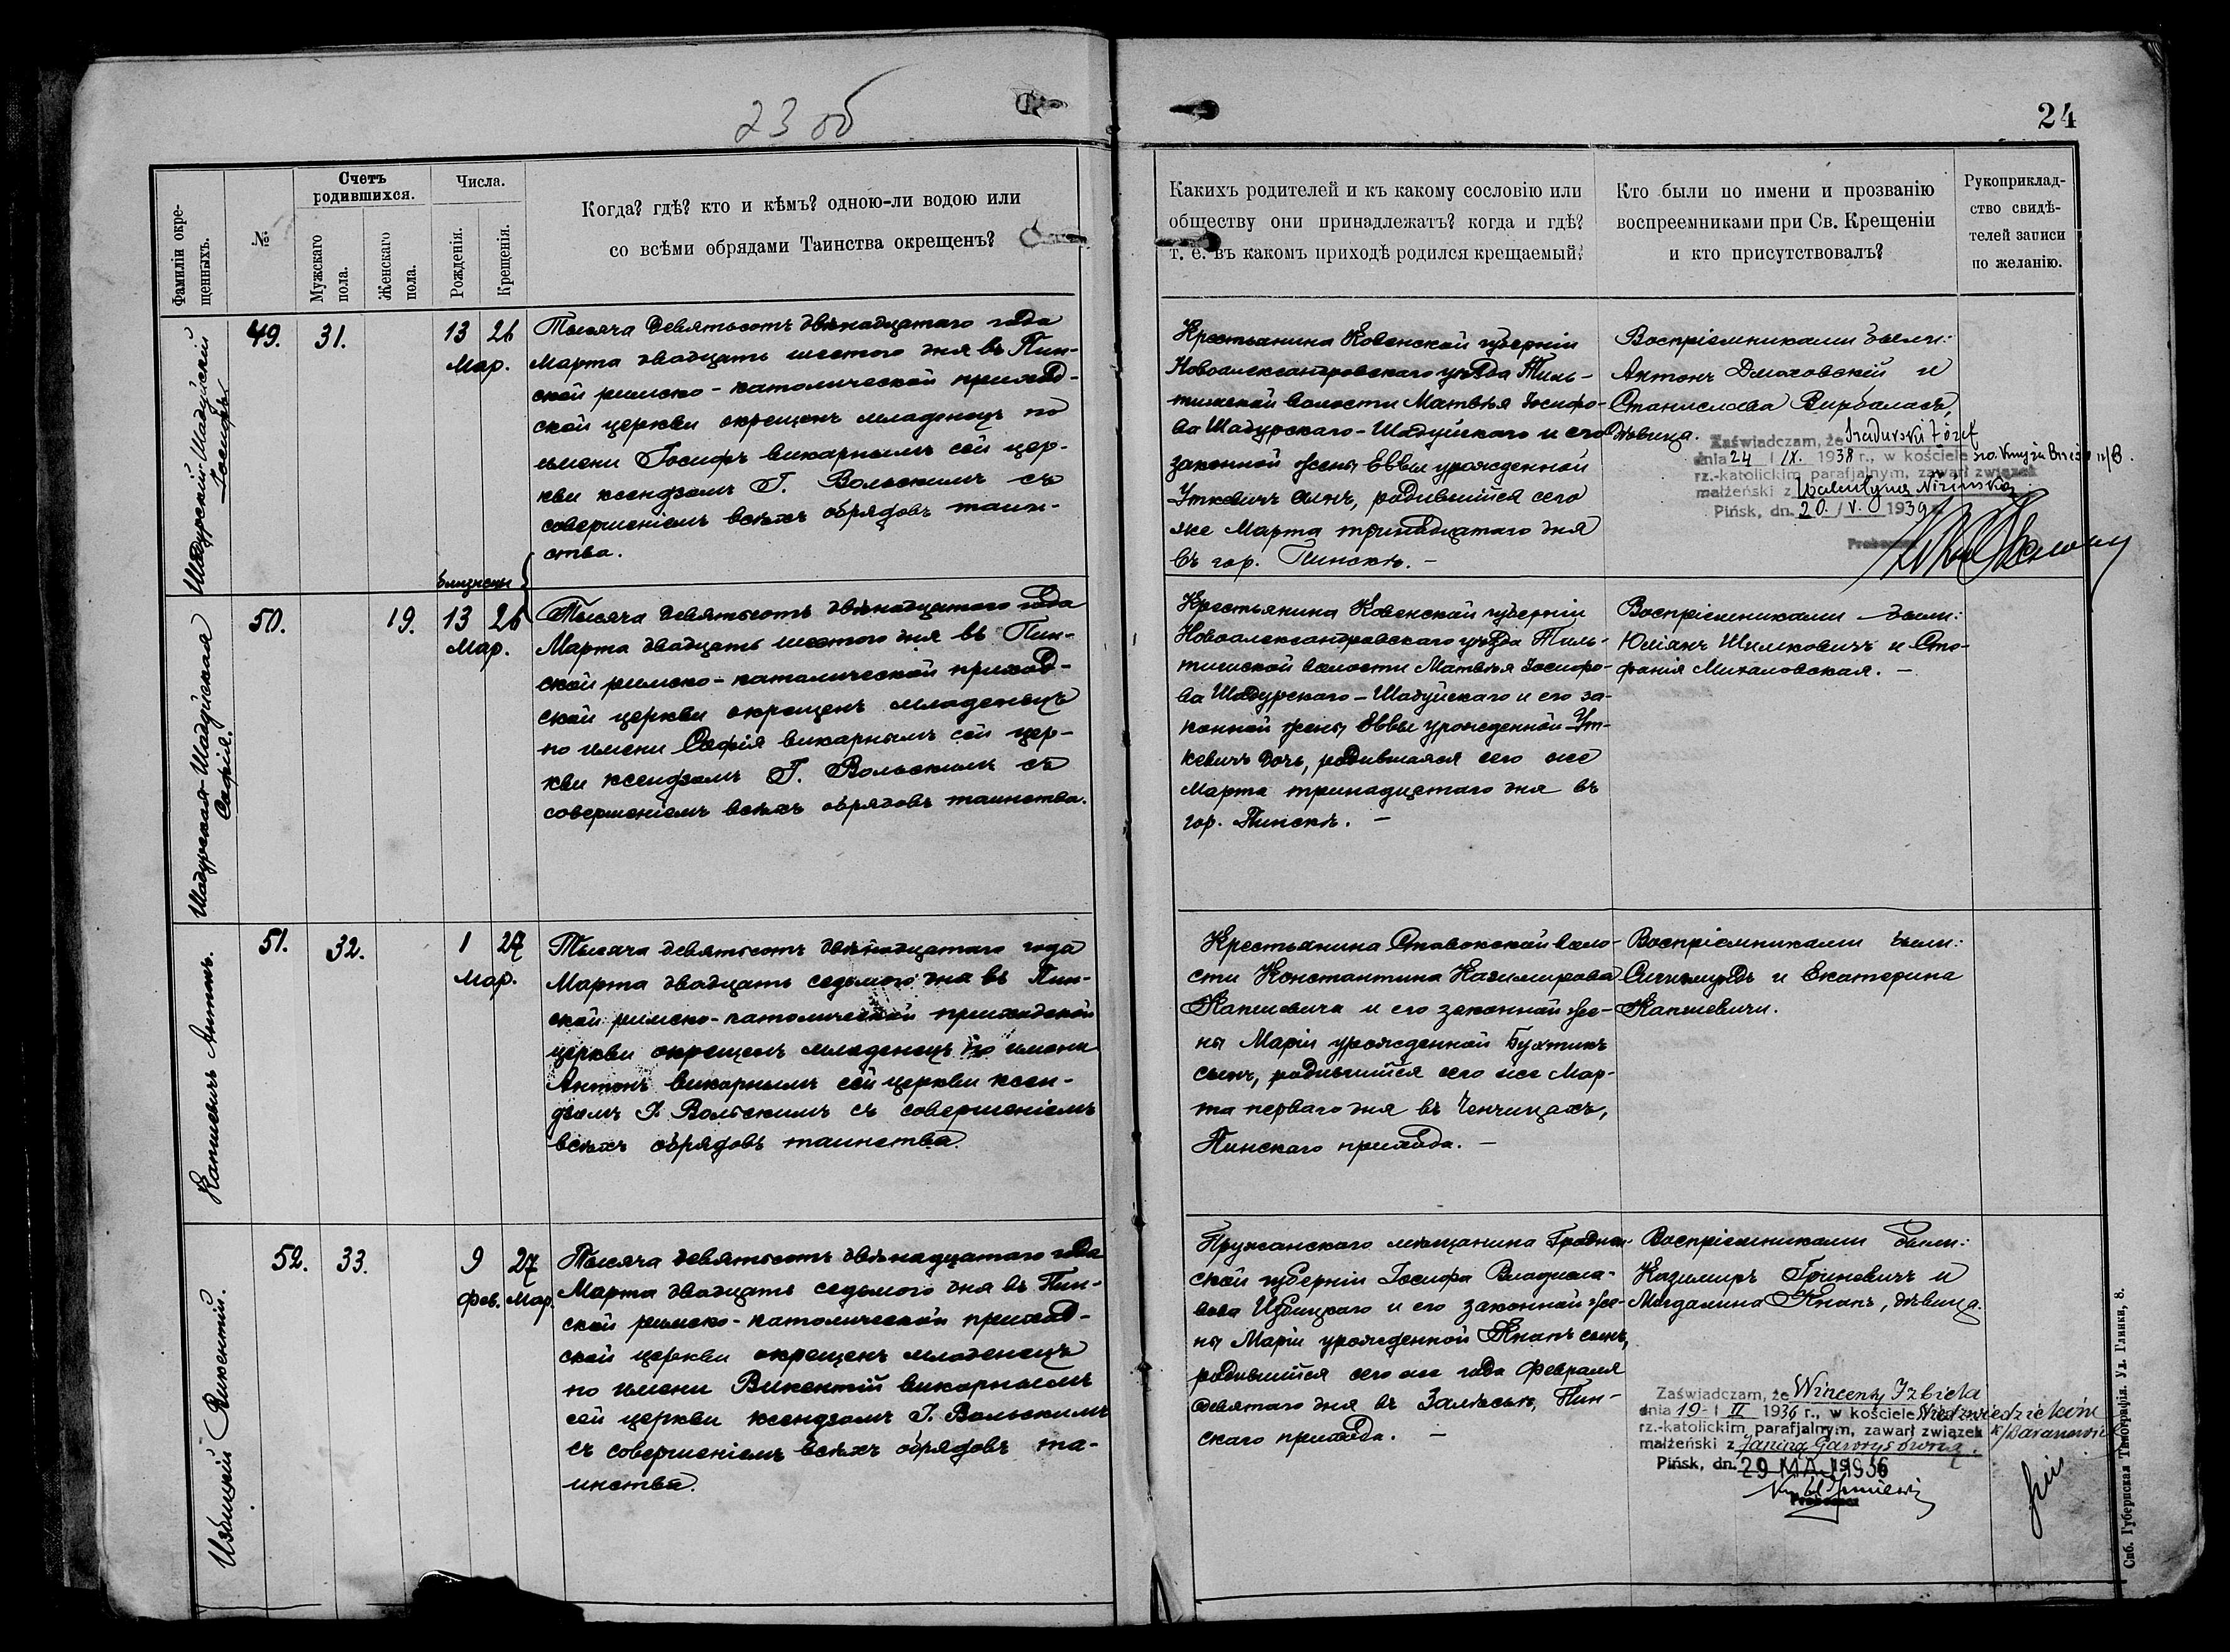 23 об
24
Фамиліи окре-
щенныхъ.
№
Счетъ
родившихся.
Мужскаго
пола.
Женскаго
пола.
Числа.
Рожденія.
Крещенія.
Когда? гдѣ? кто и кѣмъ? одною-ли водою или
со всѣми обрядами Таинства окрещенъ?
Какихъ родителей и къ какому сословію или
обществу они принадлежатъ? когда и гдѣ?
т. е. въ какомъ приходѣ родился крещаемый?
Кто были по имени и прозванію
воспреемниками при Св. Крещеніи
и кто присутствовалъ?
Рукоприклад-
ство свидѣ-
телей записи
по желанію.
Шадурскій-Шадуйскій
Іосифъ
49.
31.
13 26
Мар.
Тысяча девятьсотъ двѣнадцатаго года
Марта двадцать шестого дня въ Пин-
ской римско-католической приход-
ской церкви окрещенъ младенецъ по
имени Іосифъ викарнымъ сей цер-
кви ксендзомъ І. Вольскимъ съ
совершеніемъ всѣхъ обрядовъ таин-
ства.
Крестьянина Ковенской губерніи
Новоалександровскаго уѣзда Тиль-
тишской волости Матвѣя Іосифо-
ва Шадурскаго-Шадуйскаго и его
законной жены Еввы урожденной
Уткевичъ сынъ, родившійся сего
же Марта тринадцатаго дня
въ гор. Пинскѣ. —
Воспріемниками были:
Антонъ Дмоховскій и
Станислава Вирбаласъ,
дѣвица.
Zaświadczam, że Szadurski Józef
dnia 24 / IX. 1938 r., w kościele
rz.-katolickim parafjalnym, zawarł związek
małżeński z Walentyną
Pińsk, dn. 20. / V. 1939
Proboszcz
близнецы
Шадурская-Шадуйская
Софія.
50.
19.
13 26
Мар.
Тысяча девятьсотъ двѣнадцатаго года
Марта двадцать шестого дня въ Пин-
ской римско-католической приход-
ской церкви окрещенъ младенецъ
по имени Софія викарнымъ сей цер-
кви ксендзомъ І. Вольскимъ съ
совершеніемъ всѣхъ обрядовъ таинства.
Крестьянина Ковенской губерніи
Новоалександровскаго уѣзда Тиль-
тишской волости Матвѣя Іосифо-
ва Шадурскаго-Шадуйскаго и его за-
конной жены Еввы урожденной Ут-
кевичъ дочь, родившаяся сего же
Марта тринадцатаго дня въ
гор. Пинскѣ. —
Воспріемниками были:
Юліанъ Шимковичъ и Сте-
фанія Михаловская. —
Капшевичъ Антонъ.
51.
32.
1 27
Мар.
Тысяча девятьсотъ двѣнадцатаго года
Марта двадцать седьмого дня въ Пин-
ской римско-католической приходской
церкви окрещенъ младенецъ по имени
Антонъ викарнымъ сей церкви ксен-
дзомъ І. Вольскимъ съ совершеніемъ
всѣхъ обрядовъ таинства.
Крестьянина Ставокской воло-
сти Константина Казимирова
Капшевича и его законной же-
ны Маріи урожденной Бухтикъ
сынъ, родившійся сего же Мар-
та перваго дня въ Ченчицахъ,
Пинскаго прихода. —
Воспріемниками были:
и Екатерина
Капшевичи.
Избицкій Викентій.
52.
33.
9 27
Фев. Мар.
Тысяча девятьсотъ двѣнадцатаго года
Марта двадцать седьмого дня въ Пин-
ской римско-католической приход-
ской церкви окрещенъ младенецъ
по имени Викентій викарнымъ
сей церкви ксендзомъ І. Вольскимъ
съ совершеніемъ всѣхъ обрядовъ та-
инства.
Пружанскаго мѣщанина Гроднен-
ской губерніи Іосифа Владисла-
вова Избицкаго и его законной же-
ны Маріи урожденной Кнапъ сынъ,
родившійся сего же года Февраля
девятаго дня въ Залѣсьѣ, Пин-
скаго прихода. —
Воспріемниками были:
Казимиръ Гриневичъ и
Магдалина Кнапъ, дѣвица.
Zaświadczam, że Wincenty Izbicki
dnia 19 / II 1936 r., w kościele
rz.-katolickim parafjalnym, zawarł związek
małżeński z Janiną
Pińsk, dn. 29 MAJ 1936
Proboszcz
Спб. Губернская Типографія. Уд. Глинки, 8.